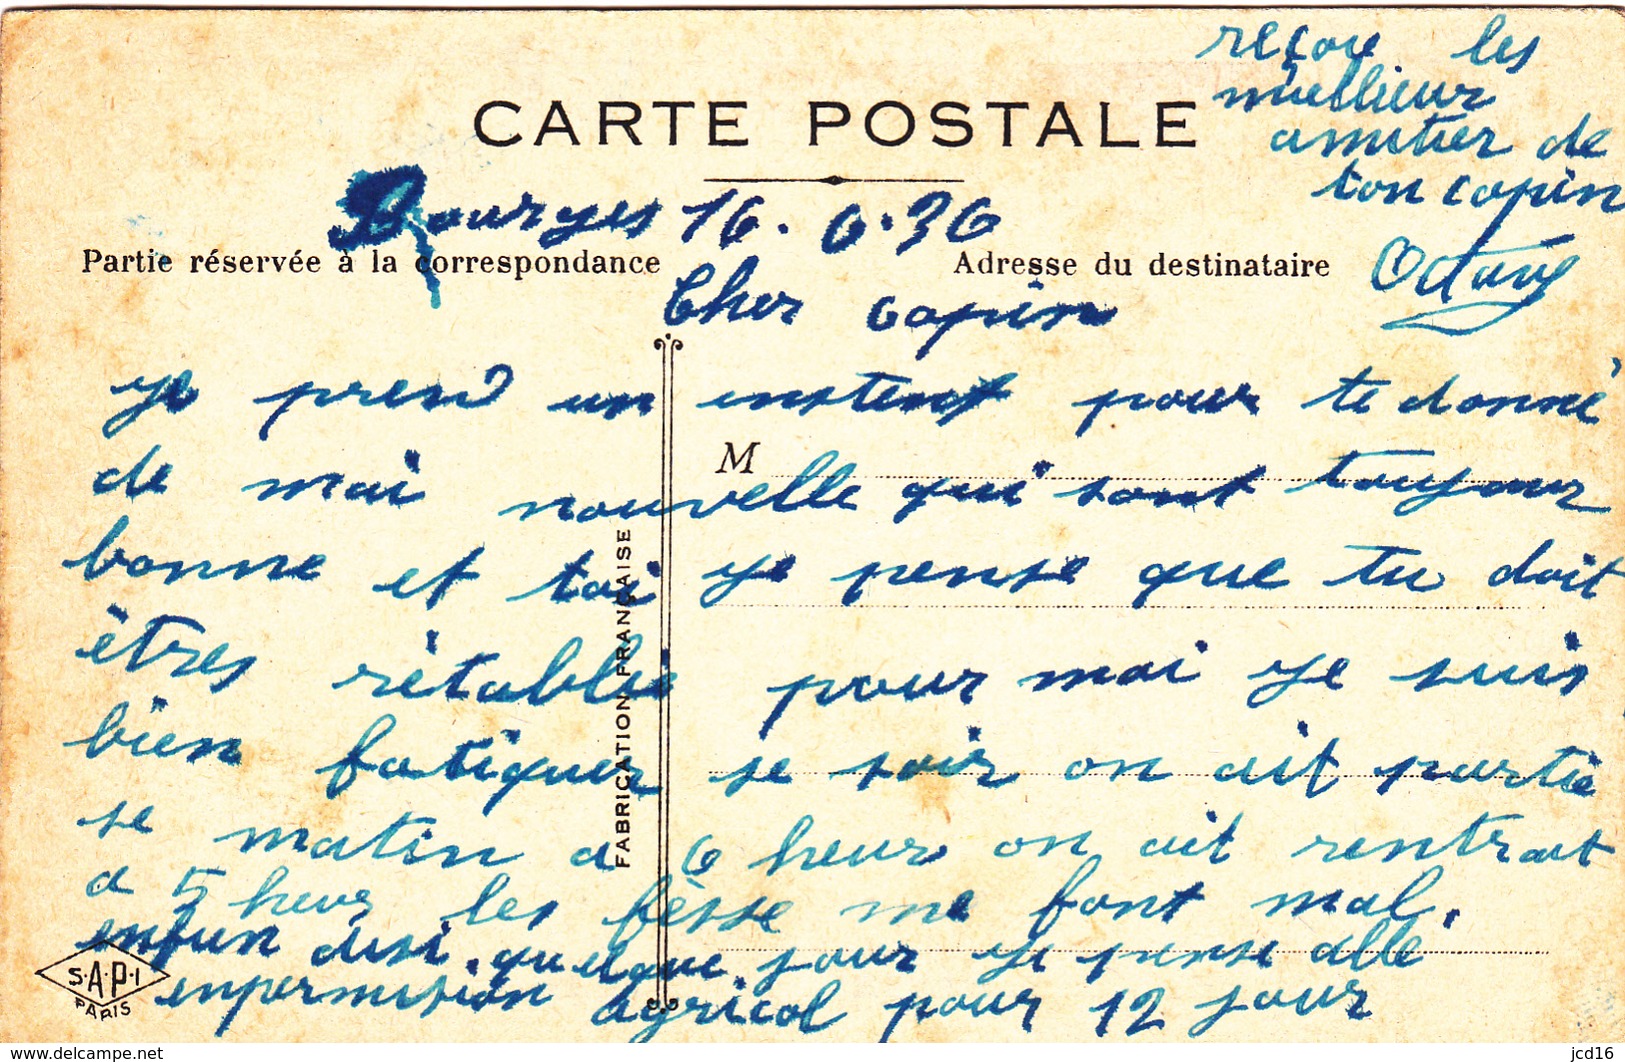 reçoue les
miellieur
amitier de
ton copin
Octave
CARTE POSTALE
Bourges 16.6.36
Partie réservée à la correspondance
Adresse du destinataire
Cher copin
je prend un instent pour te donné
de mai nouvelle qui sont toujour
M
bonne et toi je pense que tu doit
êtres rétablie pour moi je suis
bien fatiguer se soir on ait partie
se matin a 6 heur on ait rentrait
a 5 heur les fèsse me font mal.
enfun disi quelque jour je pense allé
enpermision agricol pour 12 jour
FABRICATION FRANÇAISE
S.A.P.I
PARIS
www.delcampe.net
jcd16